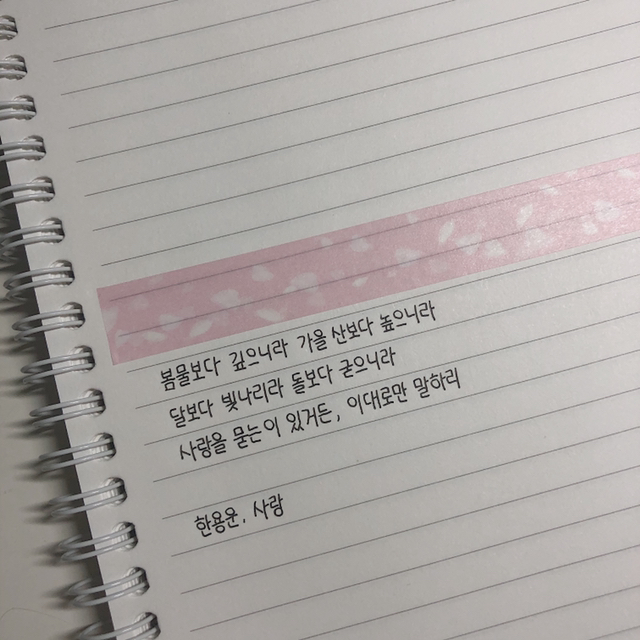 봄물보다 깊으니라 가을 산보다 높으니라
달보다 빛나리라 돌보다 굳으니라
사랑을 묻는 이 있거든, 이대로만 말하리
한용운, 사랑